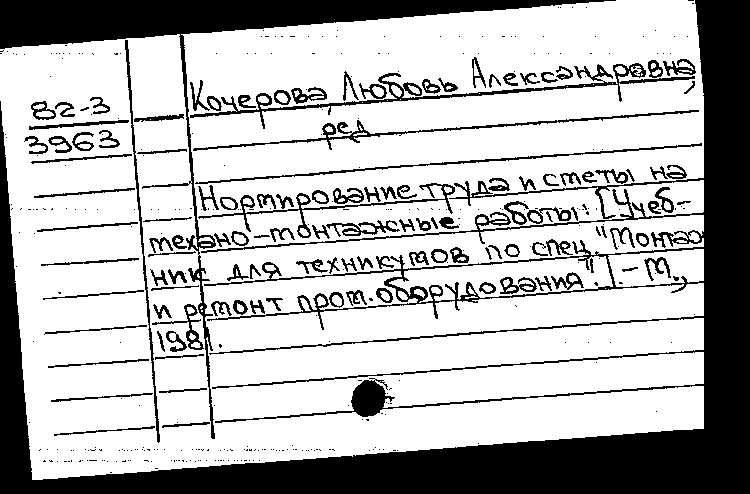 82-3
3963
Кочерова Любовь Александровна,
ред
Нормирование труда и сметы на
механо-монтажные работы: [Учеб-
ник для техникумов по спец. "Монтаж
и ремонт пром. оборудования".].-М.,
1981.